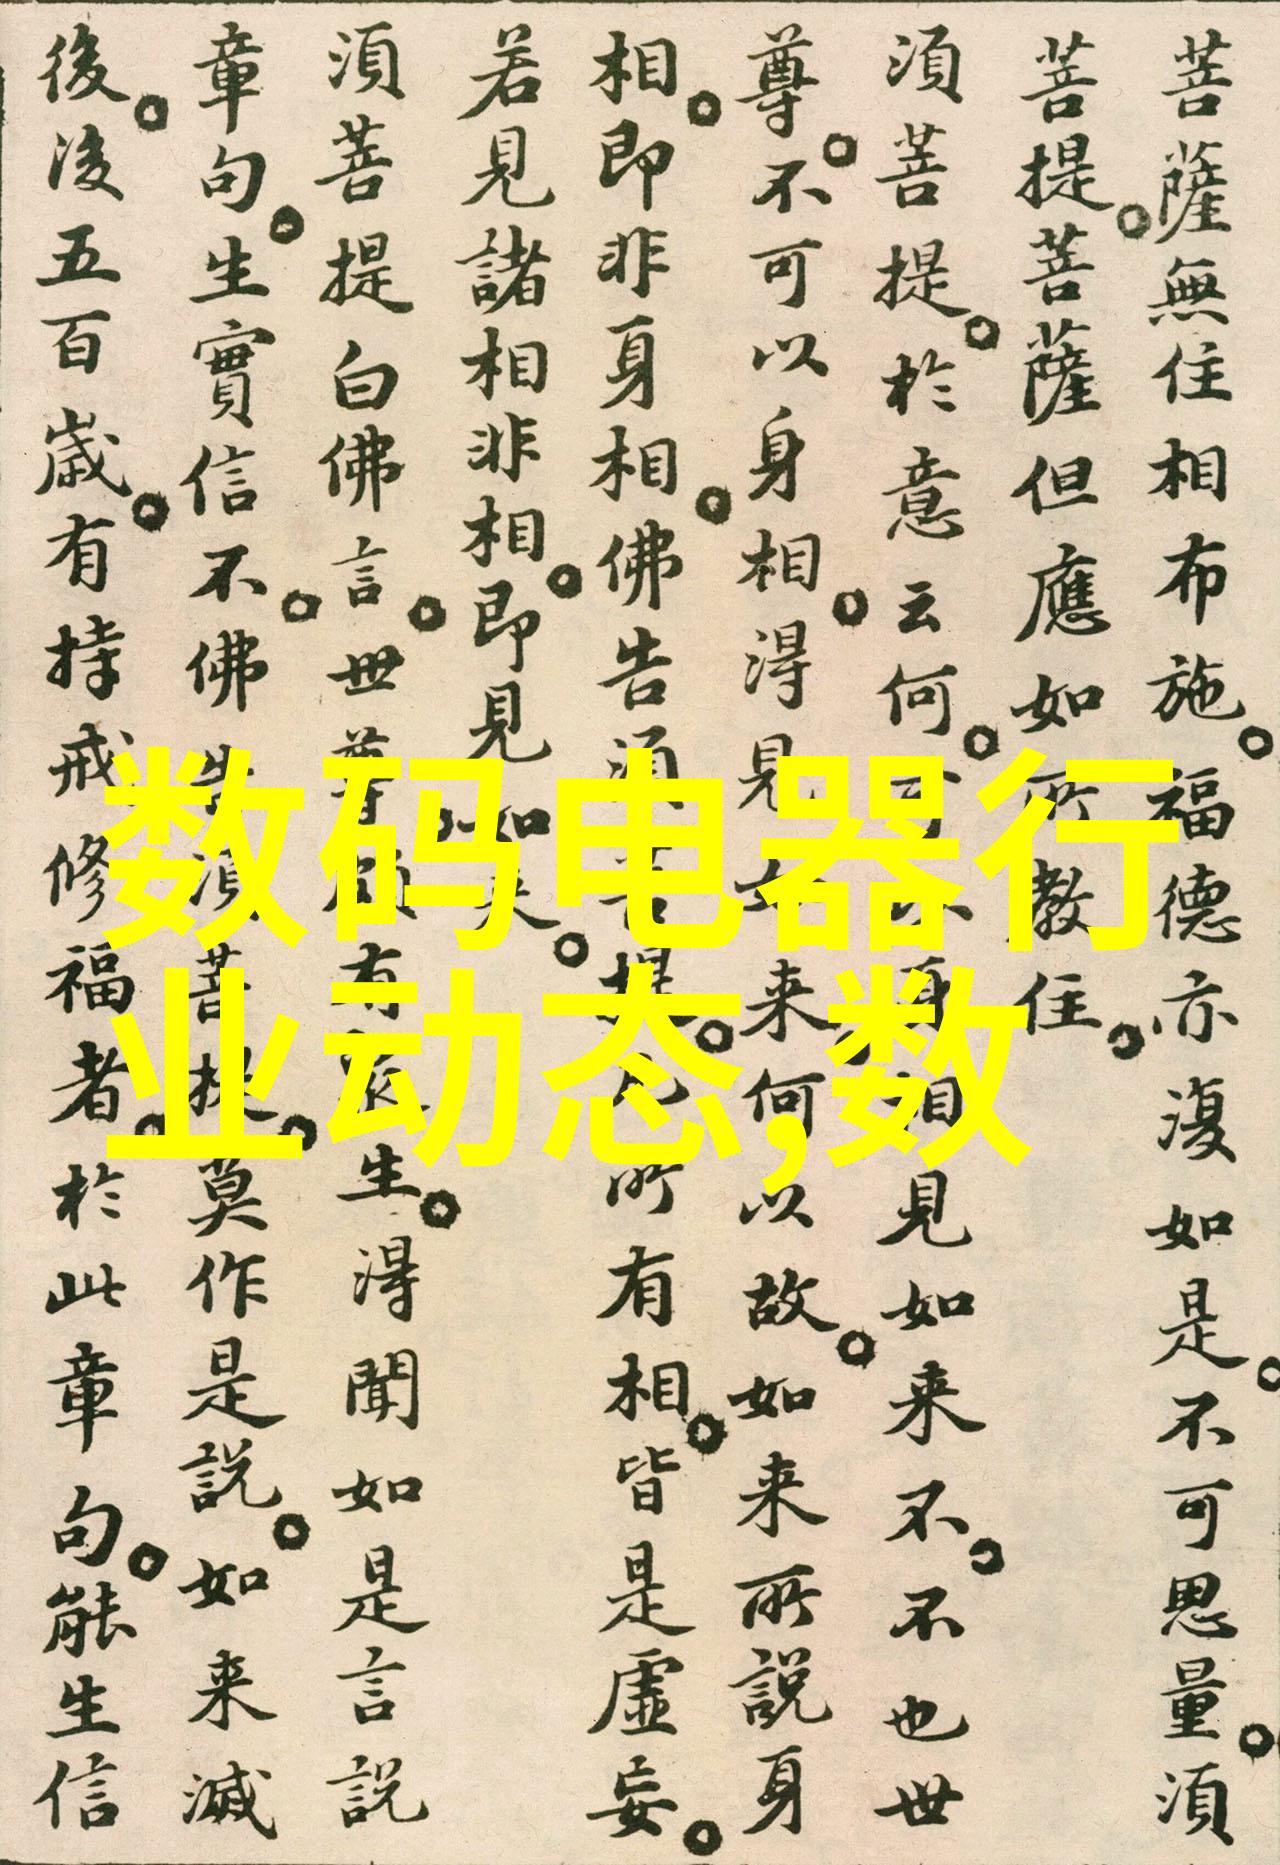 菩薩無住相布施。福德亦復如是。不可思量。須
菩提。菩薩但應如所教住。
須菩提。於意云何。可以身相見如来不。不也世
尊。不可以身相。得見如来。何以故。如来所說身
相。即非身相。佛告須菩提。凡所有相。皆是虛妄。
若見諸相非相。即見如来。
須菩提白佛言。世尊。頗有衆生。得聞如是言說
章句。生實信不。佛告須菩提。莫作是說。如来滅
後。後五百歲。有持戒修福者。於此章句。能生信
数码电器行
业动态,数